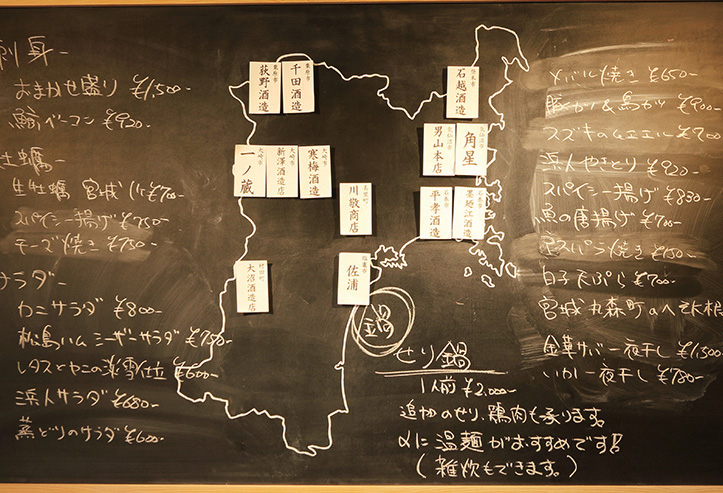 刺身ー
おまかせ盛り ¥1,500-
鯨ベーコン ¥920-
生牡蠣 宮城 ¥700-
スパイシー揚げ ¥750-
チーズ焼き ¥750-
サラダー
カニサラダ ¥800-
松島ハムシーザーサラダ ¥750-
¥600-
浜人サラダ ¥680-
蒸どりのサラダ ¥600-
荻野酒造
千田酒造
石越醸造
男山本店
角星
一ノ蔵
新澤醸造店
寒梅酒造
川敬商店
平孝酒造
墨廼江酒造
大沼酒造店
佐浦
鍋
せり鍋
1人前 ¥2,000-
追加のせり、鶏肉も承ります。
〆に温麺がおすすめです!!
(雑炊もできます。)
メバル焼き ¥650-
¥900-
スズキのムニエル ¥700-
浜人やきとり ¥920-
スパイシー揚げ ¥830-
魚の唐揚げ ¥700-
¥750-
白子天ぷら ¥700-
宮城丸森町のへそ大根
金華サバ一夜干し ¥1,500
いか一夜干し ¥780-